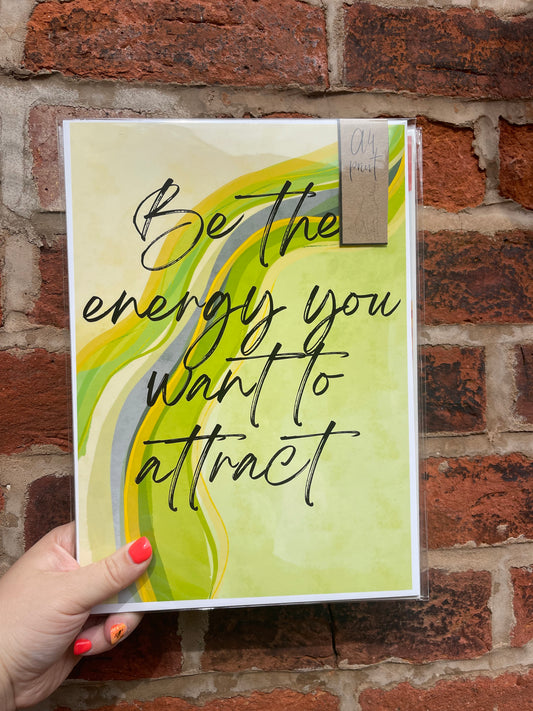 A4
print
Be the
energy you
want to
attract